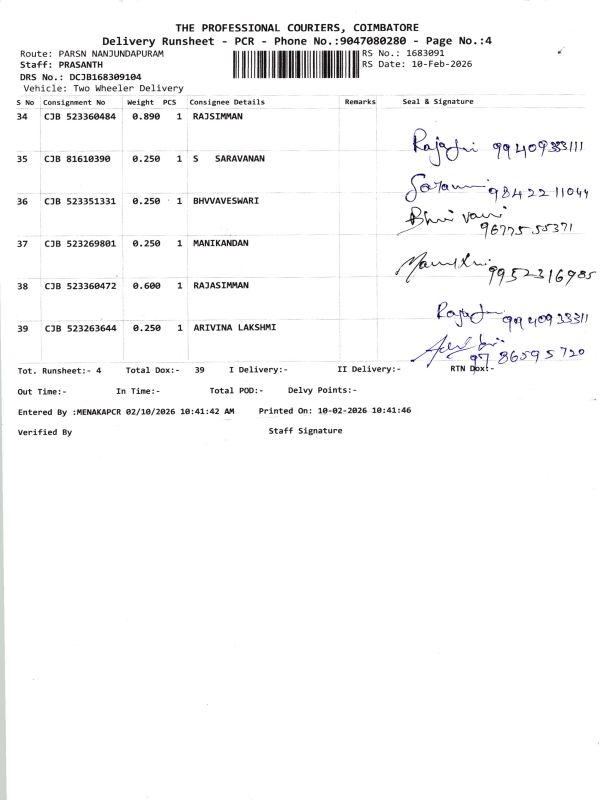 THE PROFESSIONAL COURIERS, COIMBATORE
Delivery Runsheet - PCR - Phone No.:9047080280 - Page No.:4
Route: PARSN NANJUNDAPURAM RS No.: 1683091
Staff: PRASANTH RS Date: 10-Feb-2026
DRS No.: DCJB168309104
Vehicle: Two Wheeler Delivery
S No Consignment No Weight PCS Consignee Details Remarks Seal & Signature
34 CJB 523360484 0.890 1 RAJSIMMAN
35 CJB 81610390 0.250 1 S SARAVANAN
9842211044
36 CJB 523351331 0.250 1 BHVVAVESWARI
9677555371
37 CJB 523269801 0.250 1 MANIKANDAN
9952316985
38 CJB 523360472 0.600 1 RAJASIMMAN
39 CJB 523263644 0.250 1 ARIVINA LAKSHMI
9786595720
Tot. Runsheet:- 4 Total Dox:- 39 I Delivery:- II Delivery:- RTN Dox:-
Out Time:- In Time:- Total POD:- Delvy Points:-
Entered By :MENAKAPCR 02/10/2026 10:41:42 AM Printed On: 10-02-2026 10:41:46
Verified By Staff Signature